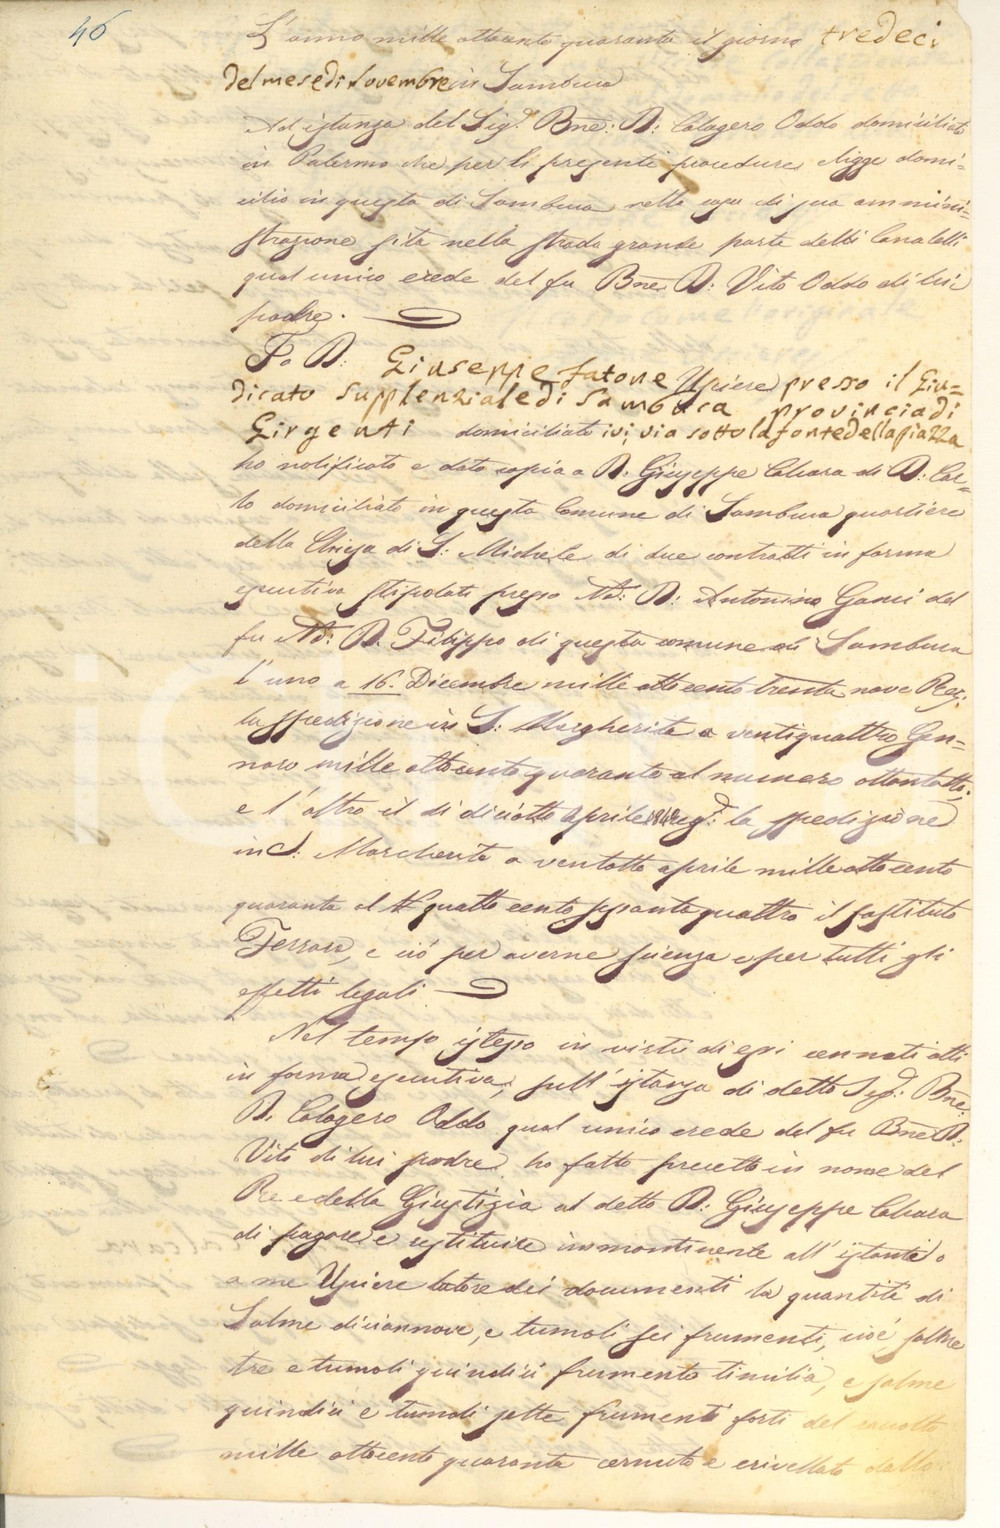 46
L'anno mille ottocento quaranta il giorno tredeci
del mese di Novembre in Sambuca
Ad istanza del Sig.r B.ne: D: Calogero Oddo domiciliato
in Palermo che per li presenti procedure eligge domi=
cilio in questa di Sambuca nella casa di sua ammini=
strazione sita nella strada grande parte delli Canalelli
qual unico erede del fu B.ne D: Vito Oddo di lui
padre.
Io D: Giuseppe Fatone Usciere presso il Giu=
dicato Supplenziale di Sambuca provincia di
Girgenti domiciliato ivi, via sotto la fonte della piazza
ho notificato e dato copia a D. Giuseppe Ciaccio di D. Car=
lo domiciliato in questa Comune di Sambuca quartiere
della Chiesa di S: Michele di due contratti in forma
esecutiva stipolati presso N.r: D: Antonino Ganci del
fu N.r: D. Filippo di questa comune di Sambuca
l'uno a 16. Dicembre mille ottocento trenta nove Reg.
la spedizione in S: Margherita a ventiquattro Gen=
naro mille ottocento quaranta al numero ottantotto;
e l'altro il dì diciotto Aprile 1840 reg.ta la spedizione
in S: Margherita a ventotto aprile mille ottocento
quaranta al N. quattrocento sessantaquattro il sostituto
Ferraro, e ciò per averne scienza e per tutti gli
effetti legali
Nel tempo istesso in virtù di essi cennati atti
in forma esecutiva, sull'istanza di detto Sig.r: B.ne:
D. Calogero Oddo qual unico erede del fu B.ne D:
Vito di lui padre ho fatto precetto in nome del
Re e della Giustizia al detto D: Giuseppe
di pagare e restituire immantinente all'istante o
a me Usciere latore dei documenti la quantità di
Salme diciannove, e tumoli sei frumenti, cioè salme
tre e tumoli quindici frumento timilia, e salme
quindici e tumoli sette frumenti forti del raccolto
mille ottocento quaranta cernuto e crivellato dallo